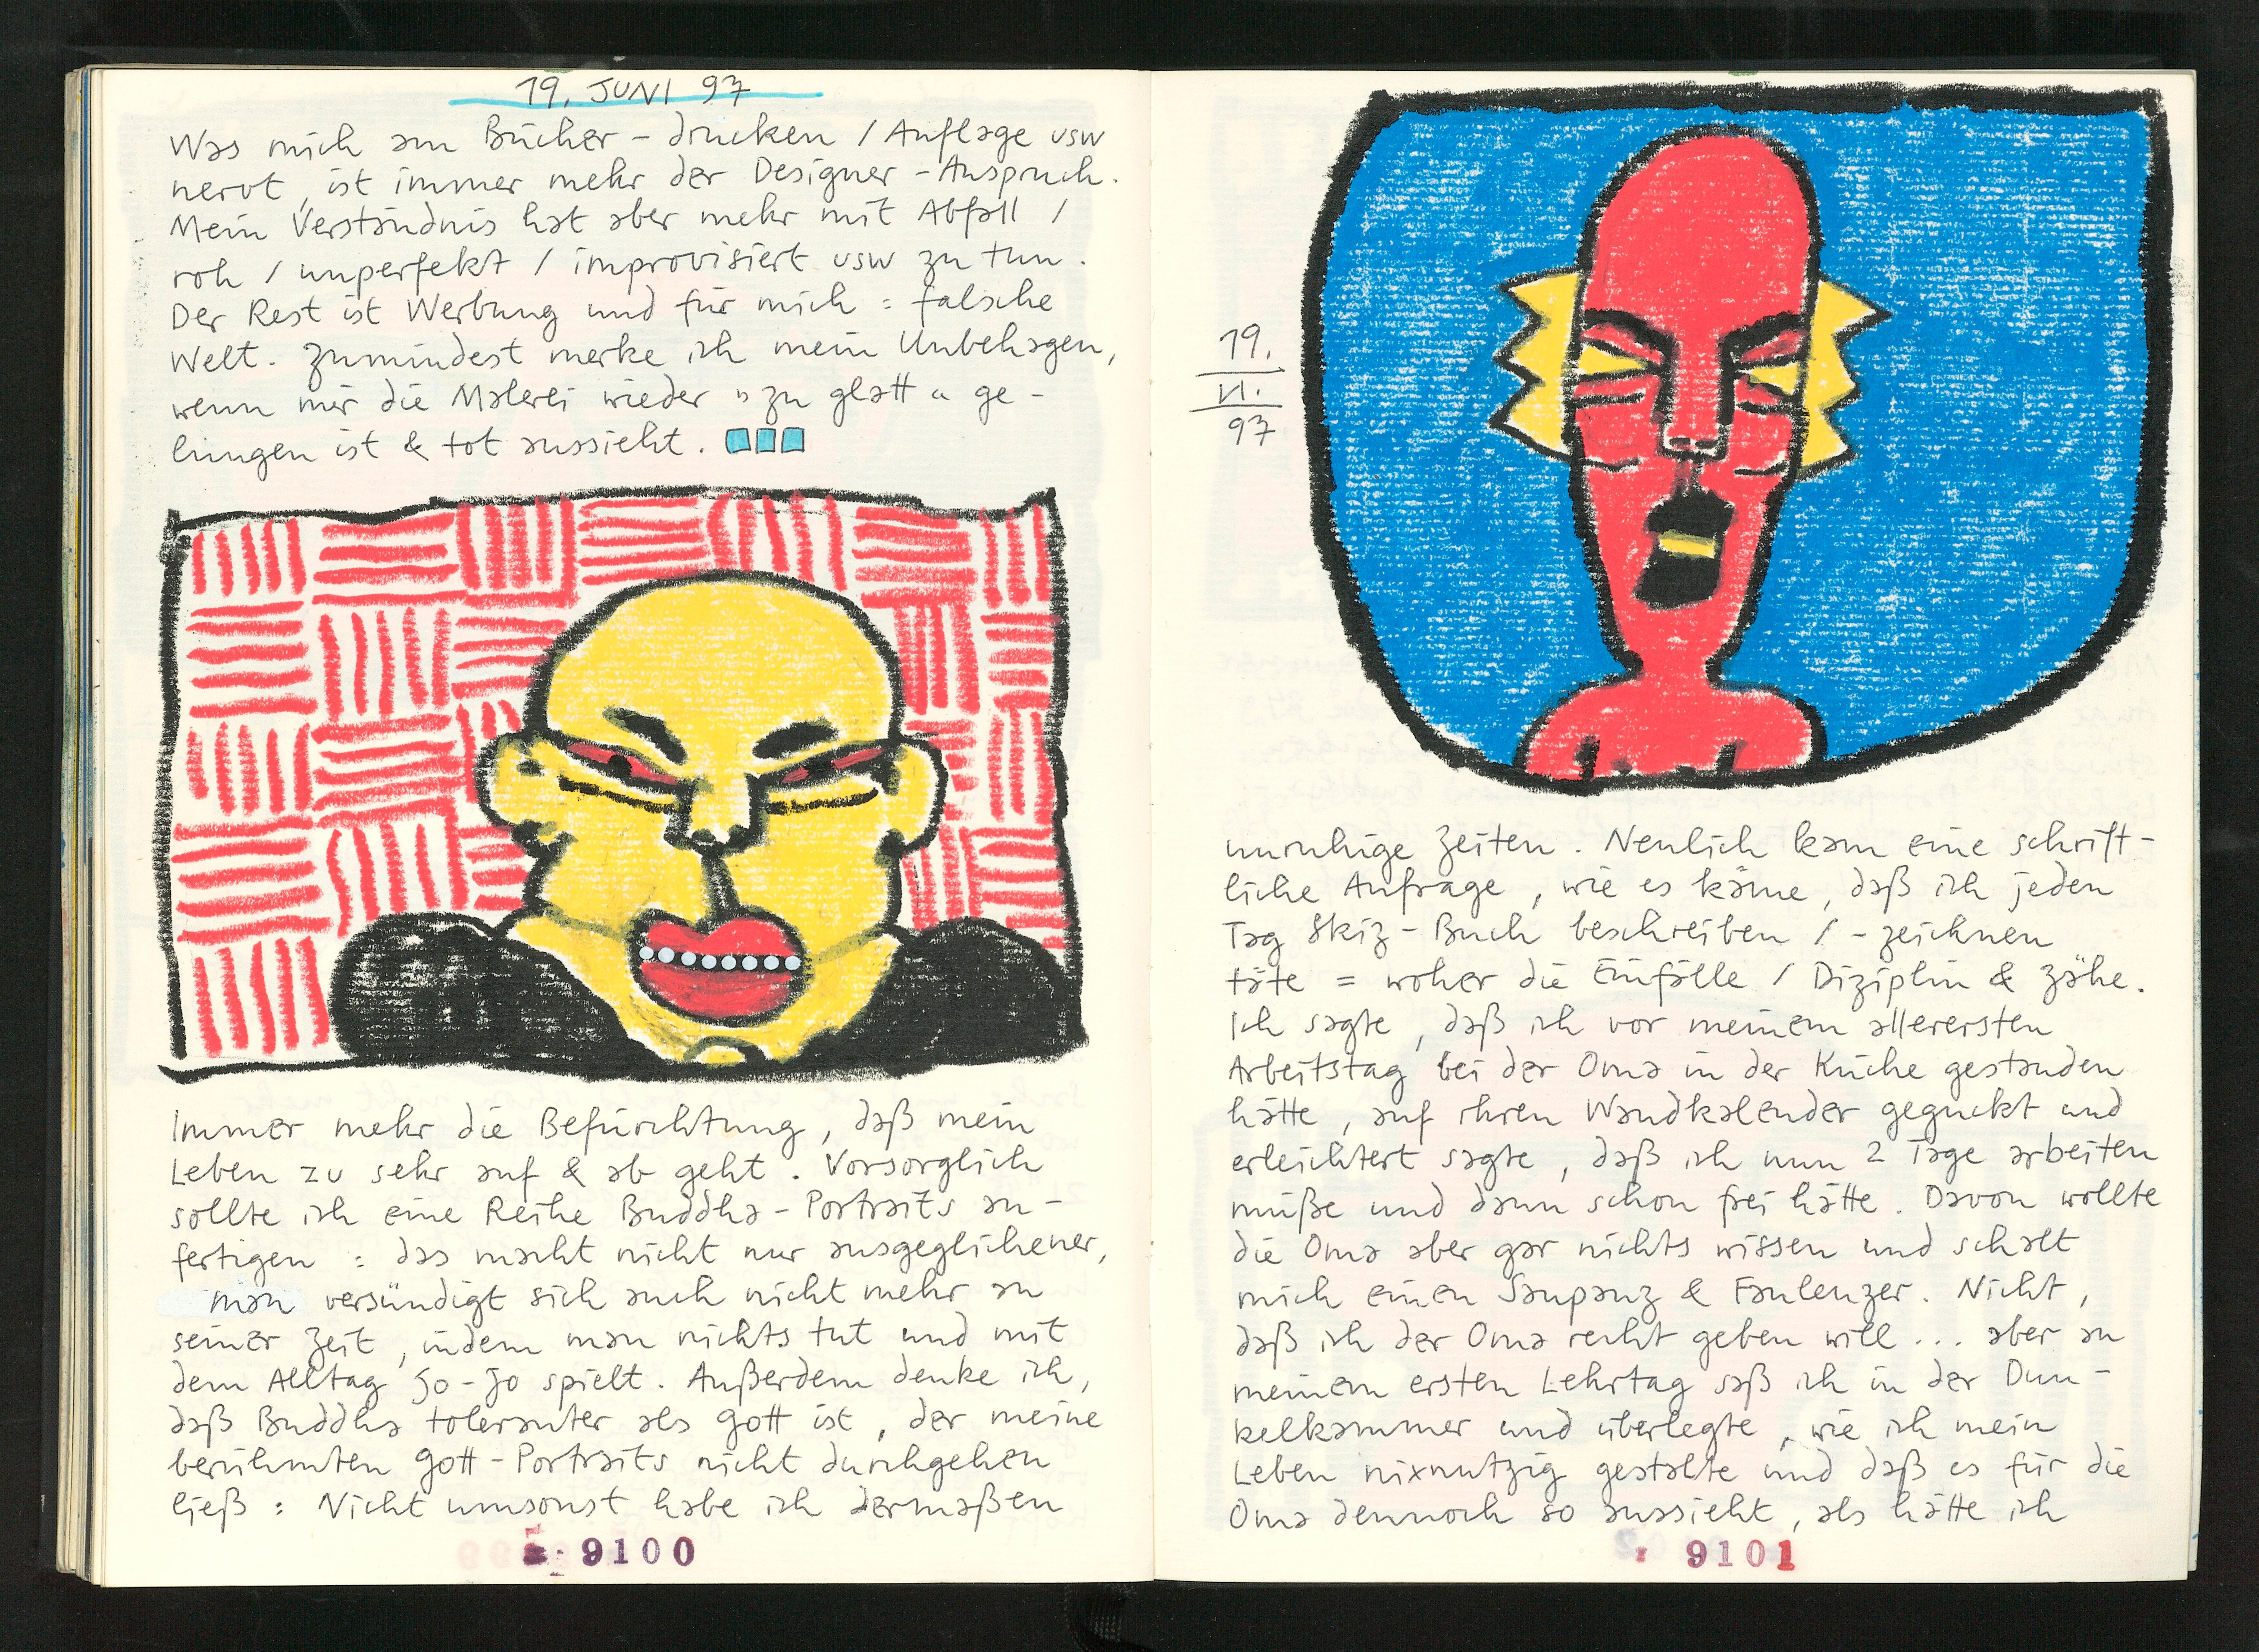 19. JUNI 97
Was mich am Bücher-drucken / Auflage usw
nervt, ist immer mehr der Designer-Anspruch.
Mein Verständnis hat aber mehr mit Abfall /
roh / unperfekt / improvisiert usw zu tun.
Der Rest ist Werbung und für mich: falsche
Welt. Zumindest merke ich mein Unbehagen,
wenn mir die Malerei wieder "zu glatt" ge-
lungen ist & tot aussieht.
Immer mehr die Befürchtung, daß mein
Leben zu sehr auf & ab geht. Vorsorglich
sollte ich eine Reihe Buddha-Portraits an-
fertigen: das macht nicht nur ausgeglichener,
man versündigt sich auch nicht mehr an
seiner Zeit, indem man nichts tut und mit
dem Alltag Jo-Jo spielt. Außerdem denke ich,
daß Buddha toleranter als Gott ist, der meine
berühmten Gott-Portraits nicht durchgehen
ließ: Nicht umsonst habe ich dermaßen
9100
19.
VI.
97
unruhige Zeiten. Neulich kam eine schrift-
liche Anfrage, wie es käme, daß ich jeden
Tag Skiz-Buch beschreiben / -zeichnen
täte = woher die Einfälle / Diziplin & Zähe.
Ich sagte, daß ich vor meinem allerersten
Arbeitstag bei der Oma in der Küche gestanden
hätte, auf ihren Wandkalender geguckt und
erleichtert sagte, daß ich nun 2 Tage arbeiten
müße und dann schon frei hätte. Davon wollte
die Oma aber gar nichts wissen und schalt
mich einen Saupanz & Faulenzer. Nicht,
daß ich der Oma recht geben will... aber an
meinem ersten Lehrtag saß ich in der Dun-
kelkammer und überlegte, wie ich mein
Leben nixnutzig gestalte und daß es für die
Oma dennoch so aussieht, als hätte ich
9101